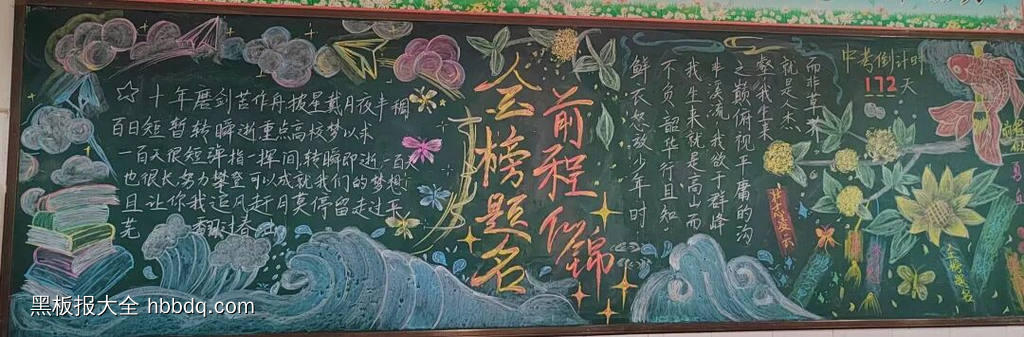 十年磨剑苦作舟披星戴月夜半稠
百日短暂转瞬逝重点高校梦以求
一百天很短弹指一挥间转瞬即逝一百天
也很长努力攀登可以成就我们的梦想
且让你我追风赶月莫停留走过平
芜
金榜题名
前程似锦
鲜衣怒放少年时
不负韶华行且知
我生来就是高山而
非溪流我欲于群峰
之巅俯视平庸的沟
壑我生来
就是人杰
而非草芥
中考倒计时
172天
金榜题名
黑板报大全 hbbdq.com